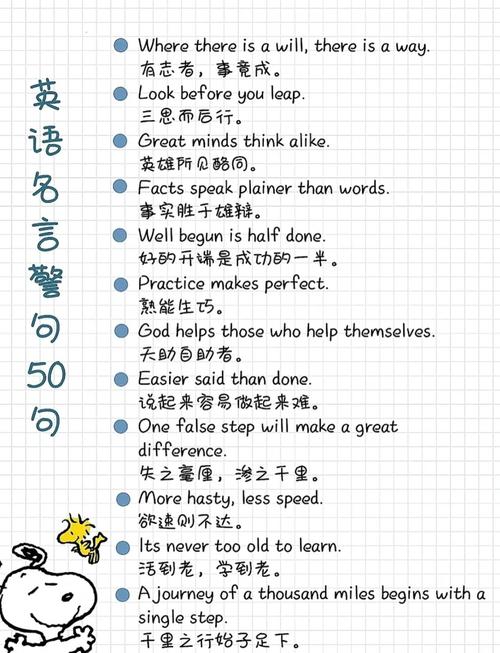 英语名言警句50句
Where there is a will, there is a way.
有志者，事竟成。
Look before you leap.
三思而后行。
Great minds think alike.
英雄所见酪同。
Facts speak plainer than words.
事实胜于雄辩。
Well begun is half done.
好的开端是成功的一半。
Practice makes perfect.
熟能生巧。
God helps those who help themselves.
天助自助者。
Easier said than done.
说起来容易做起来难。
One false step will make a great
difference.
失之毫厘，渗之千里。
More hasty, less speed.
欲速则不达。
Its never too old to learn.
活到老，学到老。
A journey of a thousand miles begins with a
single step.
千里之行始子足下。